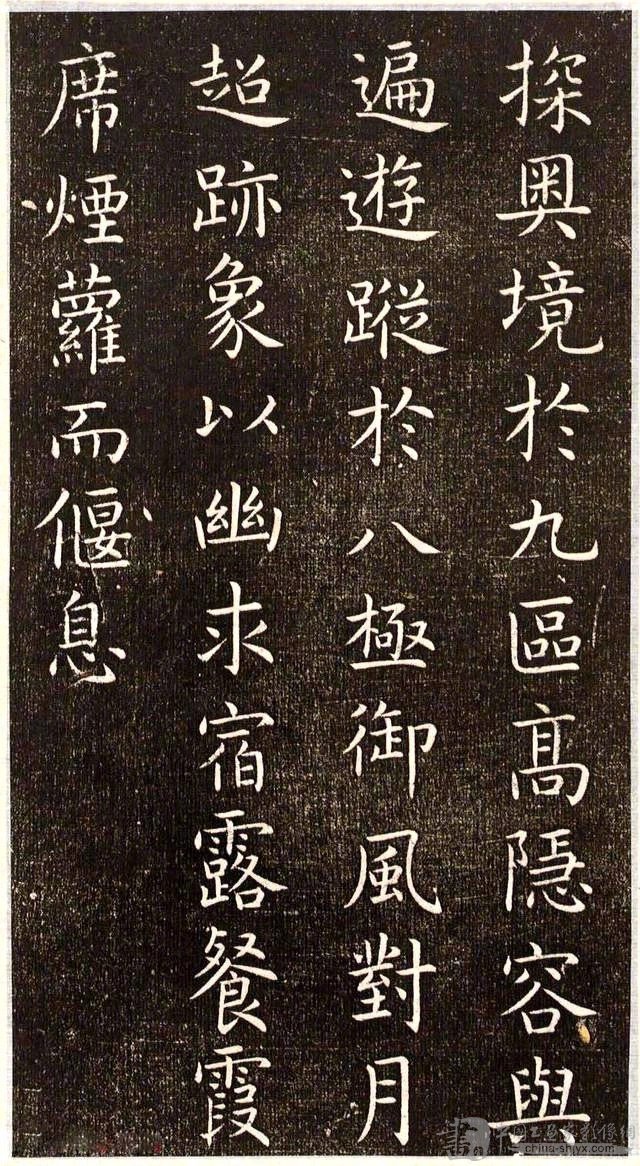 探奥境於九區高隱容與
遍遊蹤於八極御風對月
超跡象以幽求宿露餐霞
席煙蘿而偃息
中国书画家影像網
china-shjyx.com